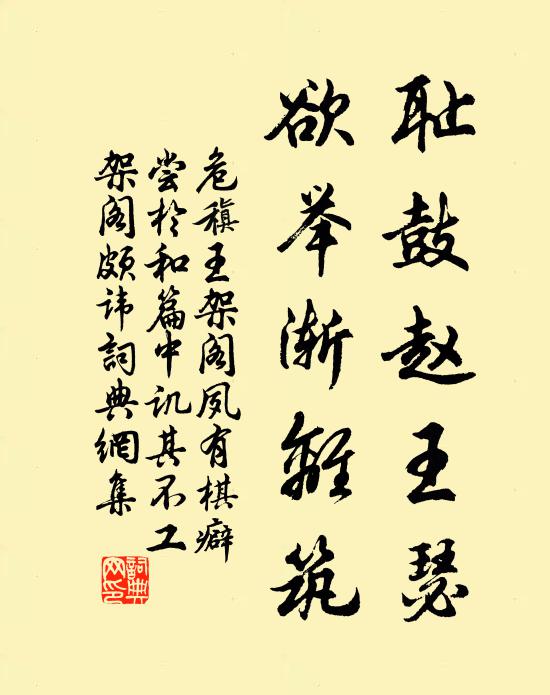 耻鼓赵王瑟
欲举渐離筑
危稹王架阁夙有棋癖
尝於和篇中讥其不工
架阁颇讳詞典網集
詞典網印